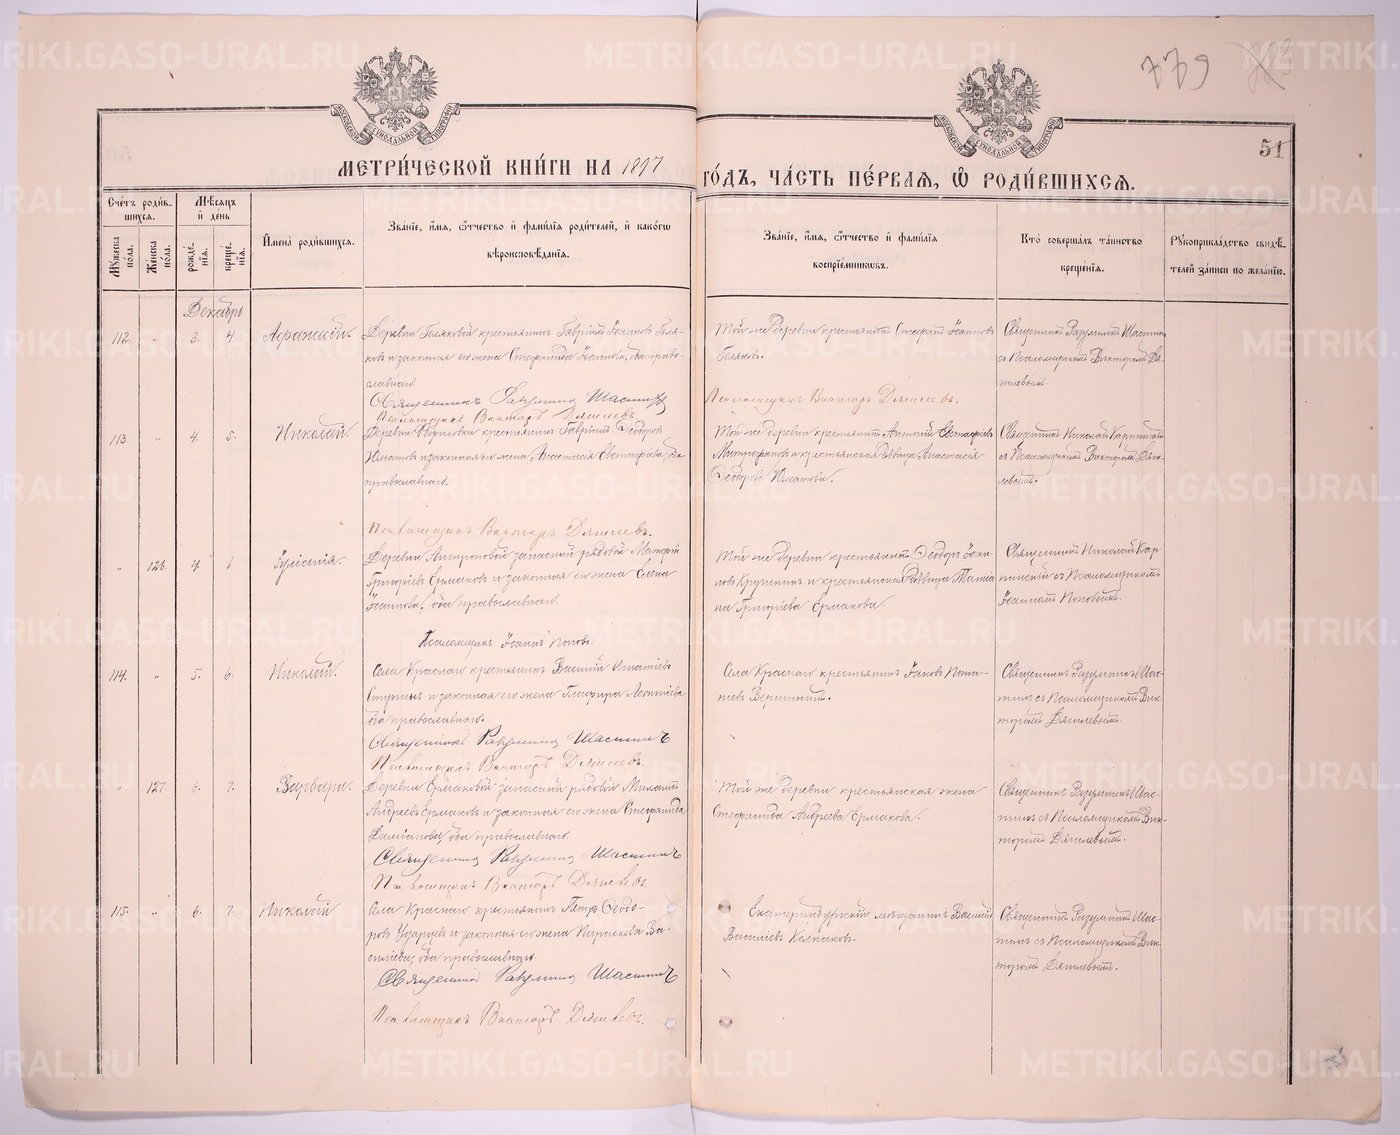 779
51
МЕТРИ́ЧЕСКОЙ КНИ́ГИ НА 1897
ГО́ДЪ, ЧА́СТЬ ПЕ́РВАѦ, Ѿ РОДИ́ВШИХСѦ.
Счетъ роди́вшихсѧ.
Мꙋжеска пола.
Женска пола.
Мѣсѧцъ и́ день
рожде́нїѧ.
креще́нїѧ.
И́мена̀ роди́вшихсѧ.
Зва́нїе, и́мѧ, ѻ҆́тчество и҆ фами́лїѧ роди́телей, и҆ како́гѡ
вѣроисповѣ́данїѧ.
Зва́нїе, и́мѧ, ѻ҆́тчество и҆ фами́лїѧ
воспрїе́мникѡвъ.
Кто̀ соверша́лъ та́инство
креще́нїѧ.
Рꙋкоприкла́дство свидѣ́-
телей за́писи по жела́нїю.
Декабрь
112. " 3. 4. Афанасій.
Деревни Поляковой крестьянинъ Гавріилъ Іоанновъ Поля-
ковъ и законная его жена Стефанида Іоаннова, оба право-
славнаго.
Священникъ Разумникъ Шастинъ
Псаломщикъ Викторъ Дягилевъ.
Той же деревни крестьянинъ Стефанъ Іоанновъ
Поляковъ.
Псаломщикъ Викторъ Дягилевъ.
Священникъ Разумникъ Шастинъ
съ Псаломщикомъ Викторомъ Дя-
гилевымъ
113 " 4. 5. Николай.
Деревни крестьянинъ Гавріилъ Ѳеодоровъ
Юматовъ и законная его жена Анастасія Евстафіева, оба
православнаго.
Псаломщикъ Викторъ Дягилевъ.
Той же деревни крестьянинъ Антоній Евстафіевъ
Митрофановъ и крестьянская дѣвица Анастасія
Ѳеодорова Юматова.
Священникъ Николай Карпинскій
съ Псаломщикомъ Викторомъ Дяги-
левымъ.
" 126. 4. 6 Іуліанія.
Деревни Антроповой запасной рядовой Матѳій
Григоріевъ Ермаковъ и законная его жена Елена
Іоаннова, оба православнаго.
Псаломщикъ Іоаннъ Поповъ.
Той же деревни крестьянинъ Ѳеодоръ Іоан-
новъ и крестьянская дѣвица Татіа-
на Григоріева Ермакова.
Священникъ Николай Кар-
пинскій съ Псаломщикомъ
Іоанномъ Поповымъ.
114. " 5. 6. Николай.
Села Краснаго крестьянинъ Василій Игнатіевъ
Ступинъ и законная его жена Глафира Леонтіева
оба православнаго.
Священникъ Разумникъ Шастинъ
Псаломщикъ Викторъ Дягилевъ.
Села Краснаго крестьянинъ Іаковъ Пота-
піевъ Вершининъ.
Священникъ Разумникъ Шас-
тинъ съ Псаломщикомъ Вик-
торомъ Дягилевымъ.
" 127. 6. 7. Варвара.
Деревни Ермаковой запасной рядовой Михаилъ
Андреевъ Ермаковъ и законная его жена Стефанида
Даміанова, оба православнаго.
Священникъ Разумникъ Шастинъ
Псаломщикъ Викторъ Дягилевъ.
Той же деревни крестьянская жена
Стефанида Андреева Ермакова.
Священникъ Разумникъ Шас-
тинъ съ Псаломщикомъ Вик-
торомъ Дягилевымъ.
115. " 6. 7. Николай
Села Краснаго крестьянинъ Петръ Ѳеодо-
ровъ Ударцевъ и законная его жена Параскева Ва-
силіева, оба православнаго.
Священникъ Разумникъ Шастинъ
Псаломщикъ Викторъ Дягилевъ.
Екатеринбургскій мѣщанинъ Василій
Василіевъ Колпаковъ.
Священникъ Разумникъ Шас-
тинъ съ Псаломщикомъ Вик-
торомъ Дягилевымъ.
METRIKI.GASO-URAL.RU